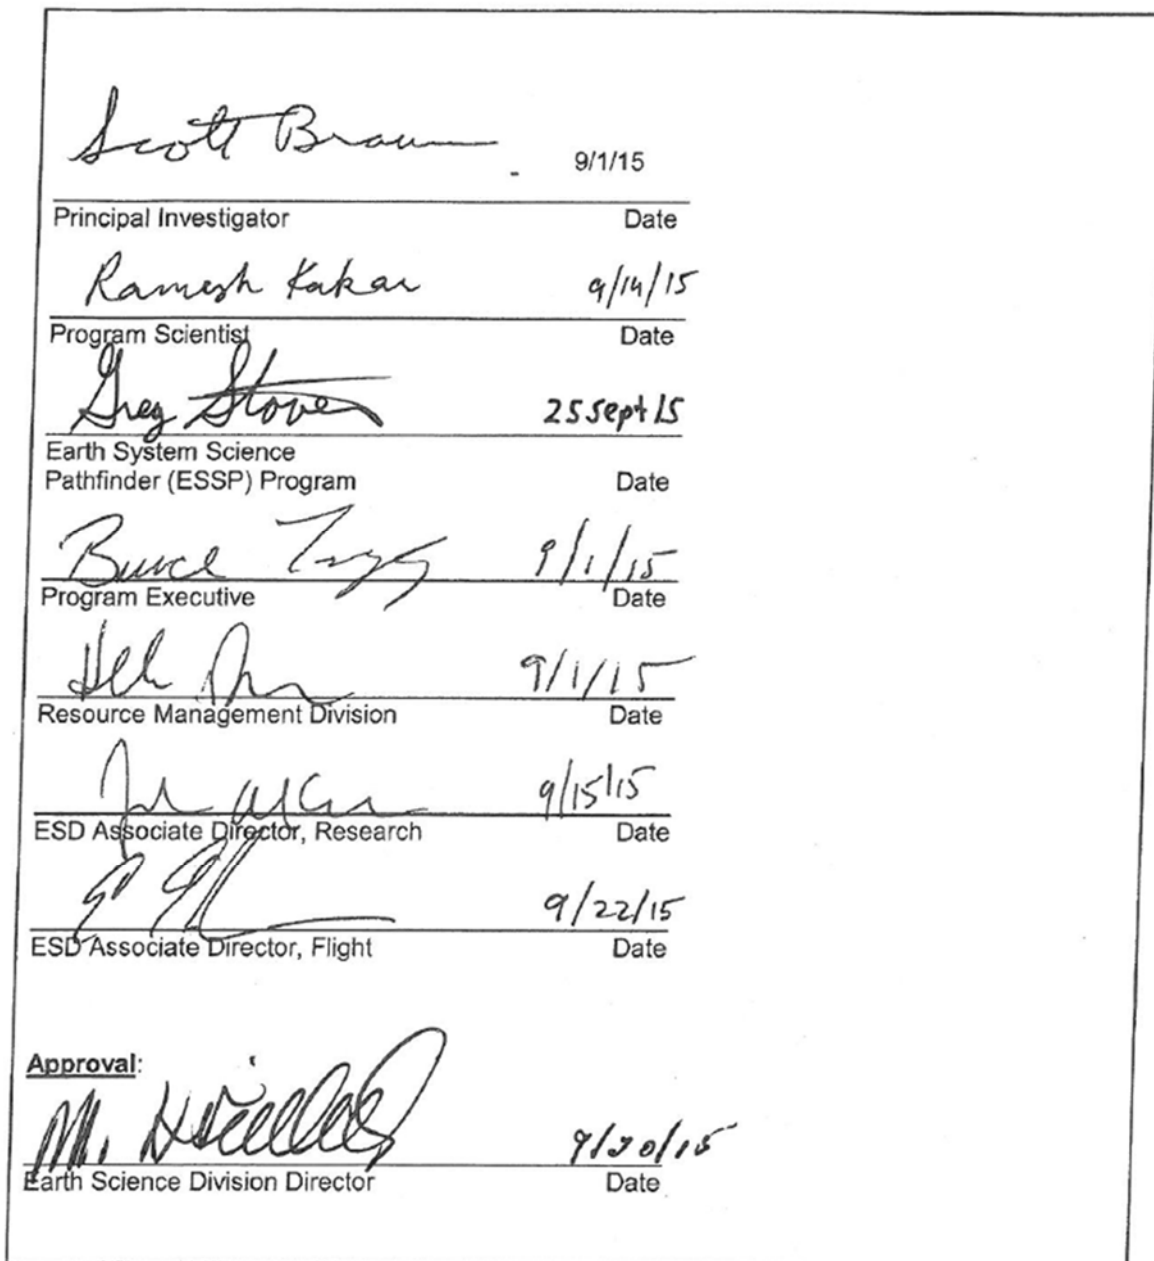 Scott Braun 9/1/15
Principal Investigator Date
Ramesh Kakar 9/14/15
Program Scientist Date
Greg Stover 25 Sept 15
Earth System Science
Pathfinder (ESSP) Program Date
Bruce 9/1/15
Program Executive Date
9/1/15
Resource Management Division Date
9/15/15
ESD Associate Director, Research Date
9/22/15
ESD Associate Director, Flight Date
Approval:
M. 9/30/15
Earth Science Division Director Date